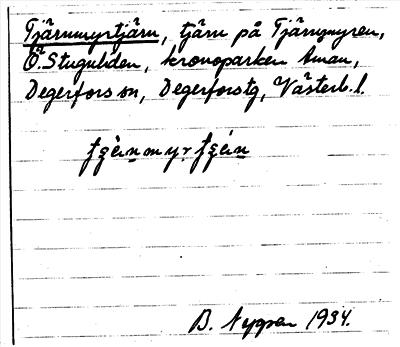 Tjärnmyrtjärn, tjärn på Tjärnmyren,
Ö. Stuguliden, kronoparken Åman,
Degerfors sn, Degerforstg, Västerb. l.
B. Nygren 1934.